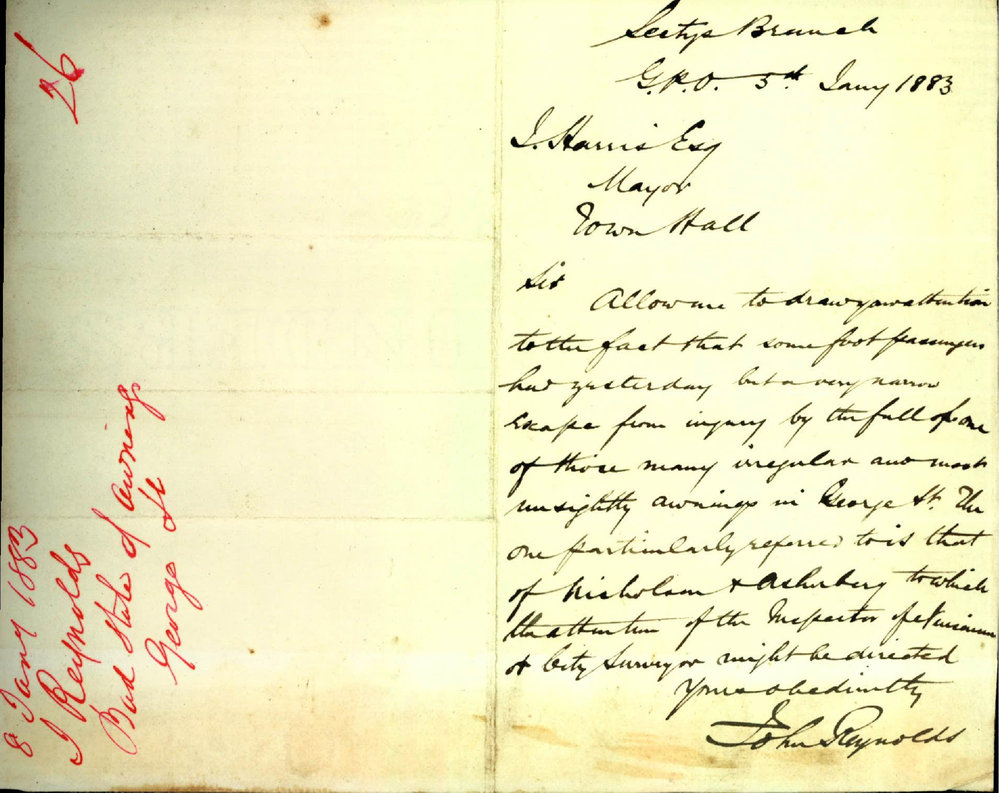 26
8 Jany 1883
J Reynolds
Bad State of Awnings
George St
Sectys Branch
G.P.O. 5th Jany 1883
J. Harris Esq
Mayor
Town Hall
Sir
Allow me to draw your attention
to the fact that some foot passengers
had yesterday but a very narrow
escape from injury by the fall of one
of those many irregular and most
unsightly awnings in George St. The
one particularly referred to is that
of Nicholson & Asherberg to which
the attention of the Inspector of Nuisances
& City Surveyor might be directed
Yours obediently
John Reynolds